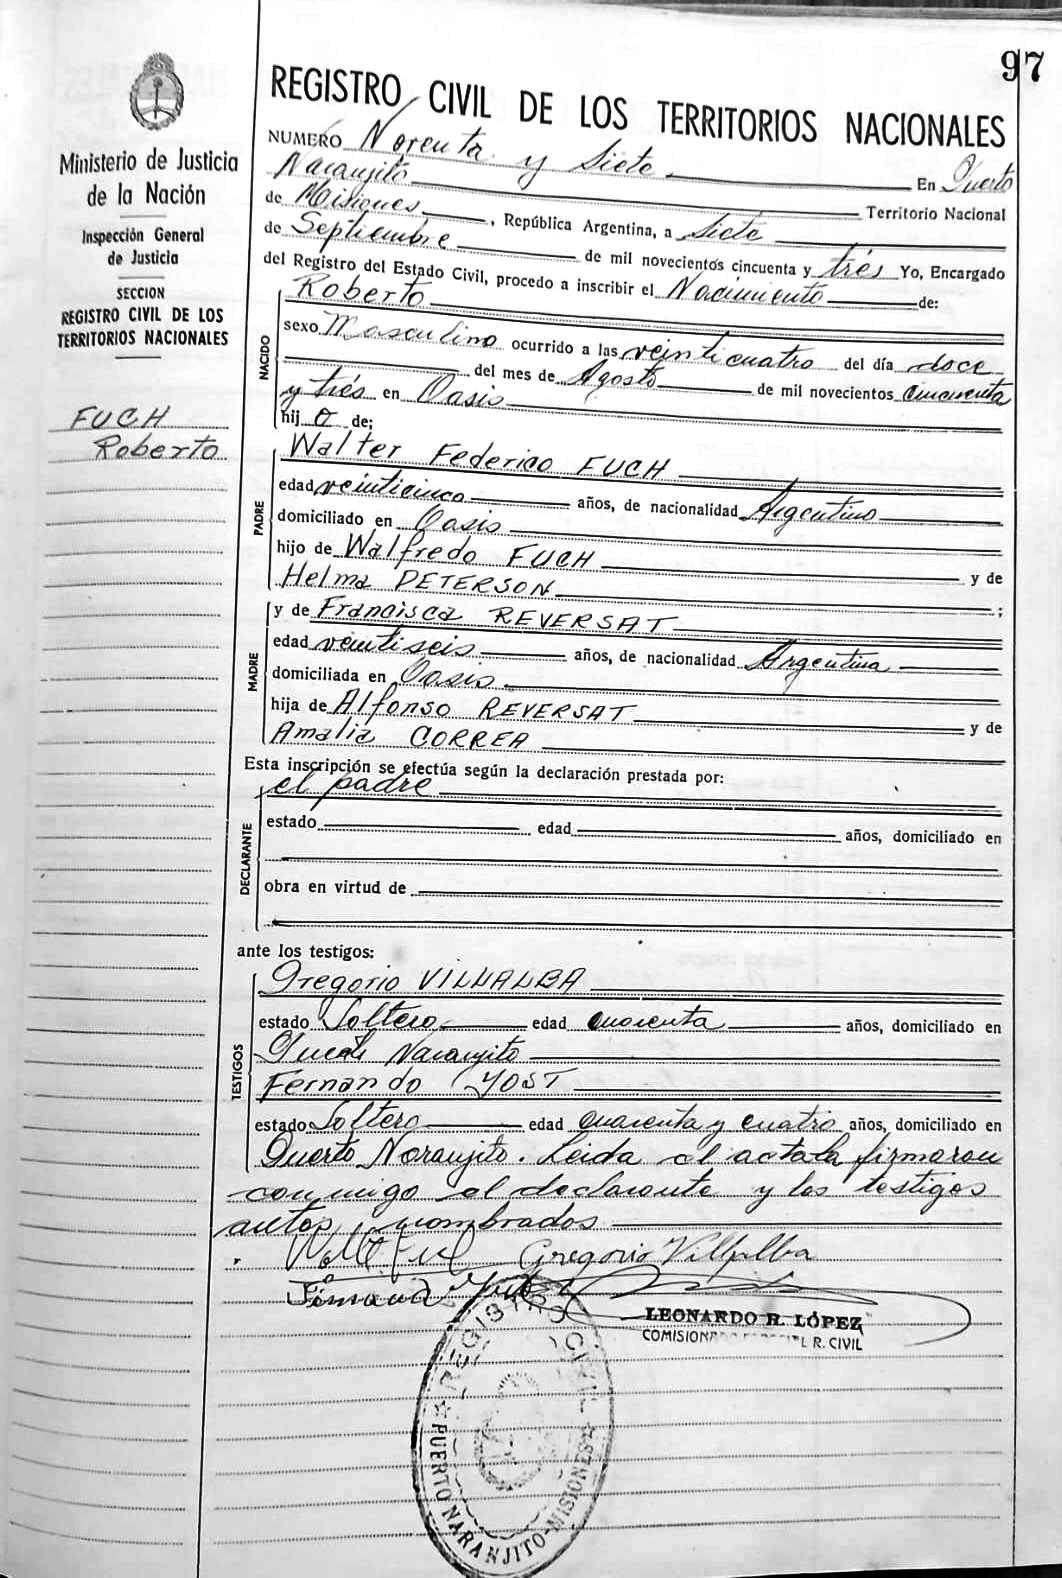 97
REGISTRO CIVIL DE LOS TERRITORIOS NACIONALES
Ministerio de Justicia
de la Nación
Inspección General
de Justicia
SECCION
REGISTRO CIVIL DE LOS
TERRITORIOS NACIONALES
FUCH
Roberto
NUMERO Noventa y Siete En Puerto
Naranjito Territorio Nacional
de Misiones, República Argentina, a Siete
de Septiembre de mil novecientos cincuenta y trés Yo, Encargado
del Registro del Estado Civil, procedo a inscribir el Nacimiento de:
NACIDO
Roberto
sexo Masculino ocurrido a las veinticuatro del día doce
del mes de Agosto de mil novecientos cincuenta
y trés en Oasis
hij o de;
PADRE
Walter Federico FUCH
edad veinticinco años, de nacionalidad Argentino
domiciliado en Oasis
hijo de Walfredo FUCH y de
Helma PETERSON;
MADRE
y de Francisca REVERSAT
edad veintiseis años, de nacionalidad Argentina
domiciliada en Oasis
hija de Alfonso REVERSAT y de
Amalia CORREA
Esta inscripción se efectúa según la declaración prestada por:
DECLARANTE
el padre
estado edad años, domiciliado en
obra en virtud de
ante los testigos:
TESTIGOS
Gregorio VILLALBA
estado Soltero edad cuarenta años, domiciliado en
Puerto Naranjito
Fernando YOST
estado Soltero edad cuarenta y cuatro años, domiciliado en
Puerto Naranjito. Leida el acta la firmaron
conmigo el declarante y los testigos
antes nombrados
Gregorio Villalba
LEONARDO R. LÓPEZ
COMISIONADO ESPECIAL R. CIVIL
REGISTRO CIVIL
PUERTO NARANJITO - MISIONES